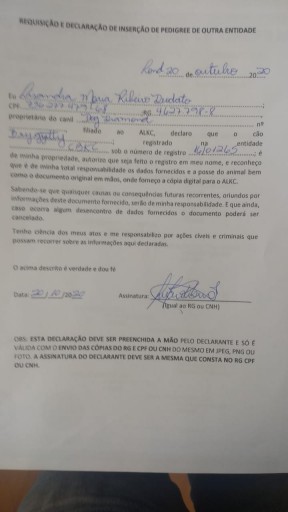 REQUISIÇÃO E DECLARAÇÃO DE INSERÇÃO DE PEDIGREE DE OUTRA ENTIDADE
20 de outubro 2020
Eu Maria Ribeiro
CPF RG 4627798-8 nº
proprietário do canil Dog Diamond
filiado ao ALKC, declaro que o cão
registrado na entidade
CBKC sob o número de registro ; é
de minha propriedade, autorizo que seja feito o registro em meu nome, e reconheço
que é de minha total responsabilidade os dados fornecidos e a posse do animal bem
como o documento original em mãos, onde forneço a cópia digital para o ALKC.
Sabendo-se que quaisquer causas ou consequências futuras recorrentes, oriundos por
informações deste documento fornecido, serão de minha responsabilidade. E que ainda,
caso ocorra algum desencontro de dados fornecidos o documento poderá ser
cancelado.
Tenho ciência dos meus atos e me responsabilizo por ações cíveis e criminais que
possam recorrer sobre as informações aqui declaradas.
O acima descrito é verdade e dou fé
Data: 20/10/2020 Assinatura:
(Igual ao RG ou CNH)
OBS: ESTA DECLARAÇÃO DEVE SER PREENCHIDA A MÃO PELO DECLARANTE E SÓ É
VÁLIDA COM O ENVIO DAS CÓPIAS DO RG E CPF OU CNH DO MESMO EM JPEG, PNG OU
FOTO. A ASSINATURA DO DECLARANTE DEVE SER A MESMA QUE CONSTA NO RG CPF
OU CNH.